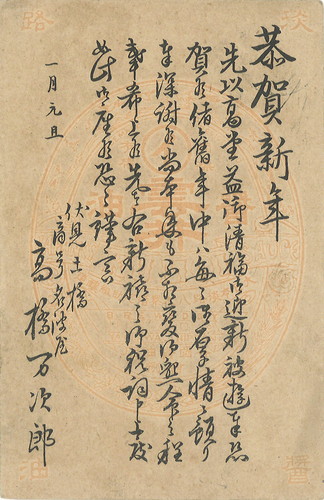 恭賀新年
先以高堂益御清福御迎新被遊奉恐
賀候偖舊年中ハ毎々御厚情ヲ預リ
奉深謝候尚本年も不相變御愛命之程
奉希上候先者右新禧之御祝詞申上度
如此御座候恐々謹言
一月元旦
伏見土橋
商号
高橋万次郎
淡
路
醤
油